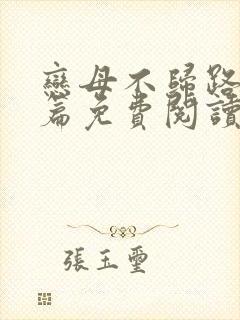 戀母不歸路
篇免費閱讀
張玉璽